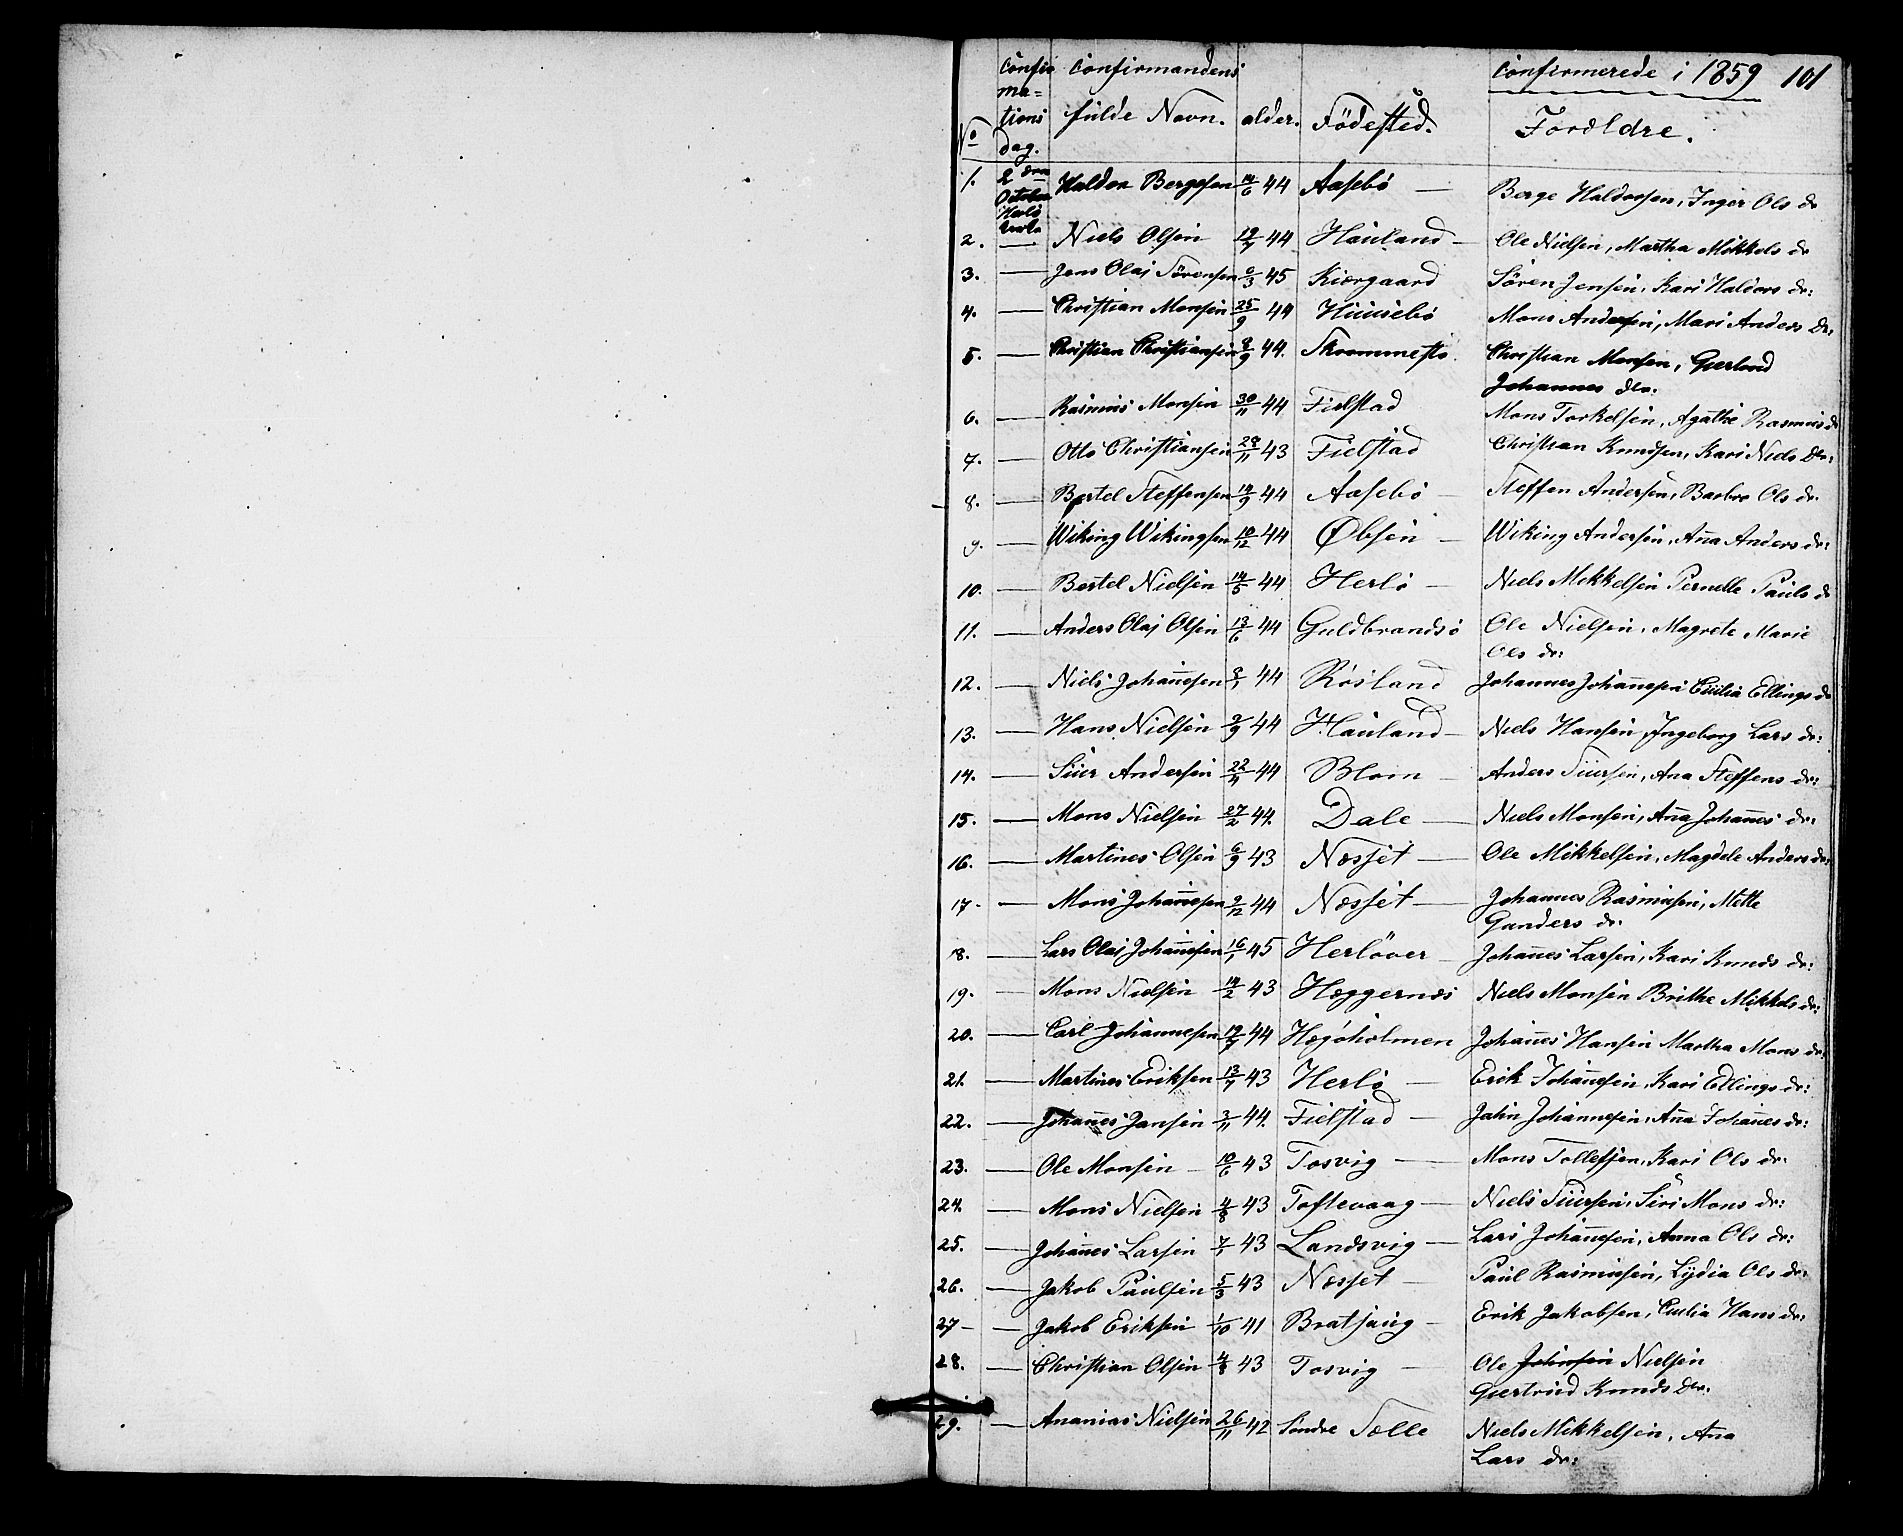 Confirmerede i 1859 101
No Confir Confirmandens
ma=
tions fulde Navn. alder. Födested. Forældre.
dag.
1. 2den October Herlö Kirke Haldor Bergesen 14/6 44 Aasebö — Berge Haldorsen, Inger Ols dr
2. — Niels Olsen 19/7 44 Hauland — Ole Nielsen, Martha Mikkels dr
3. — Jens Olai Sörensen 6/3 45 Kiærgaard Sören Jensen, Kari Haldors dr:
4. — Christian Monsen 25/9 44 Huusebö Mons Andersen, Mari Anders dr:
5. — Christian Christiansen 8/9 44. Skrommesto Christian Monsen, Gierlond
Johannes dtr:
6. — Rasmus Monsen 30/11 44 Fielstad Mons Torkelsen, Agathe Rasmus dr
7. — Otto Christiansen 28/11 43 Fielstad Christian Knudsen, Kari Niels dtr:
8. — Bertel Steffensen 14/9 44 Aasebö — Steffen Andersen, Barbro Ols dr.
9. — Wiking Wikingsen 10/12 44 Øbsen — Wiking Andersen, Ana Anders dr:
10. — Bertel Nielsen 14/5 44 Herlö — Niels Mikkelsen Pernelle Pauls dr
11. — Anders Olai Olsen 13/6 44 Guldbrandsö Ole Nielsen, Magrete Marie
Ols dr:
12. — Niels Johanesen 8/1 44 Rösland Johannes Johanesen Cicilia Ellings dr
13. — Hans Nielsen 9/9 44 Hauland — Niels Hansen, Ingeborg Lars dr:
14. — Siur Andersen 22/11 44 Blom — Anders Siursen, Ana Steffens dr:
15. — Mons Nielsen 27/2 44. Dale — Niels Monsen, Ana Johanes dr:
16. — Martines Olsen 6/9 43 Næsset — Ole Mikkelsen, Magdele Anders dr:
17. — Mons Johanesen 9/12 44 Næsset — Johannes Rasmusen, Mette
Gunders dr:
18. — Lars Olai Johanesen 16/1 45 Herlöver — Johanes Larsen, Kari Knuds dr:
19. — Mons Nielsen 14/2 43 Hæggernæs Niels Monsen Brithe Mikkels dr:
20. — Carl Johannesen 19/7 44 Hægöholmen Johanes Hansen Martha Mons dr:
21. — Martines Eriksen 13/1 43 Herlö — Erik Johanesen, Kari Edlings dr:
22. — Johanes Jansen 3/11 44. Fielstad — Jahn Johannesen, Ana Johanes dr:
23. — Ole Monsen — 10/6 43 Tosvig — Mons Tollefsen, Kari Ols dr.
24. — Mons Nielsen 4/8 43 Toftevaag — Niels Siursen, Siri Mons dr:
25. — Johanes Larsen 7/1 43 Landsvig — Lars Johanesen, Anna Ols dr:
26. — Jakob Paulsen 5/3 43 Næsset — Paul Rasmusen, Lydia Ols dr:
27 — — Jakob Eriksen 1/10 41 Bratsaug — Erik Jakobsen, Cicilia Hans dr:
28. — Christian Olsen 4/8 43 Tosvig — Ole Johnsen Nielsen
Giertrud Knuds dtr.
29. — Ananias Nielsen 26/11 42 Söndre Sælle Niels Mikkelsen, Ana
Lars dr: